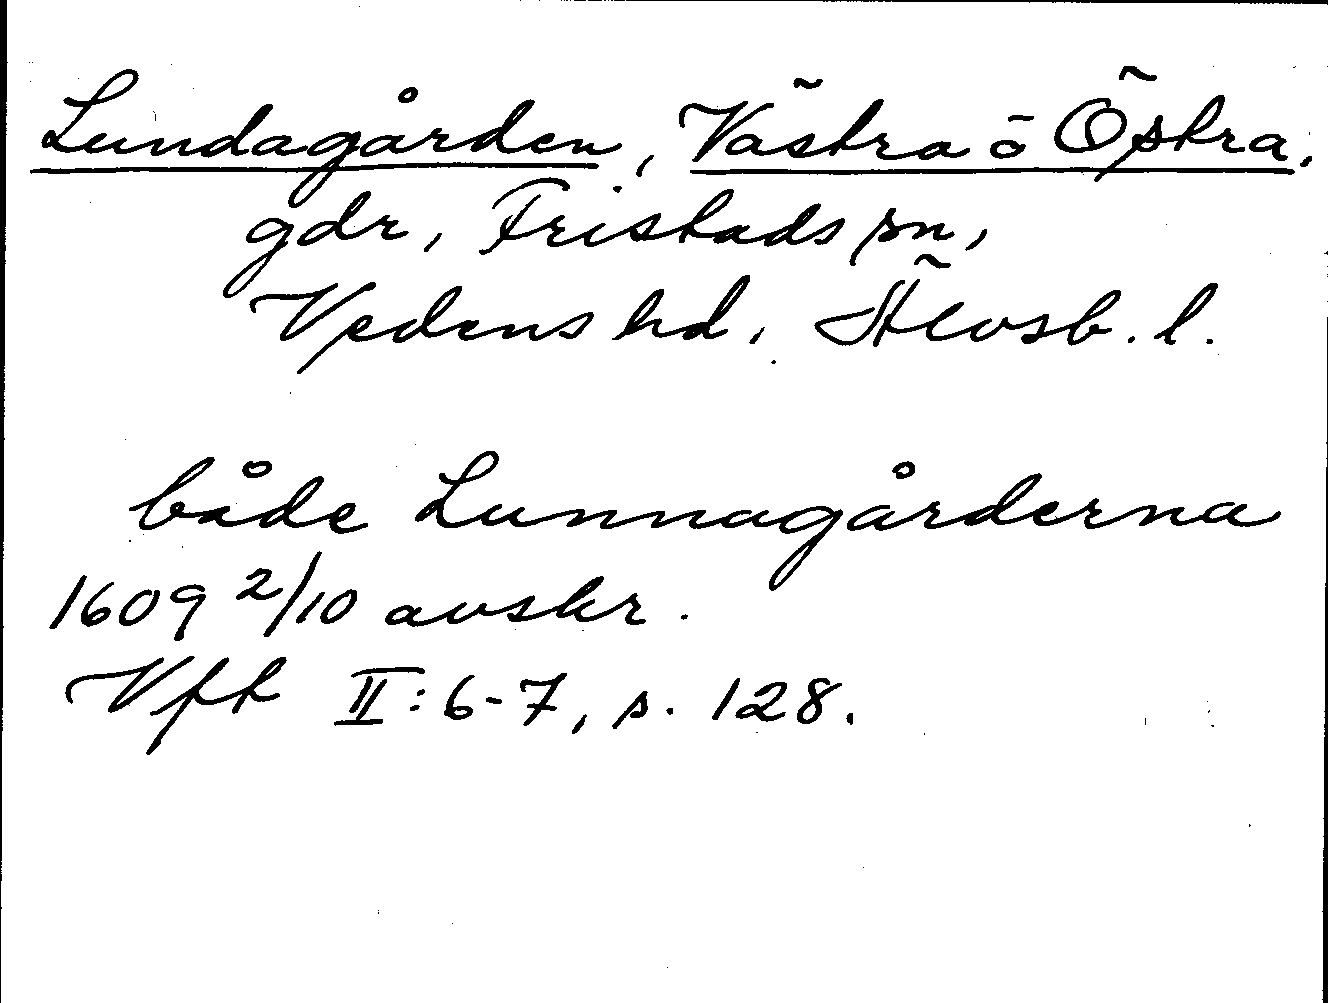 Lundagården, Västra o Östra,
gdr, Fristads sn,
Vedens hd, Älvsb. l.
både Lunnagårderna
1609 2/10 avskr.
Vft II:6-7, s. 128.